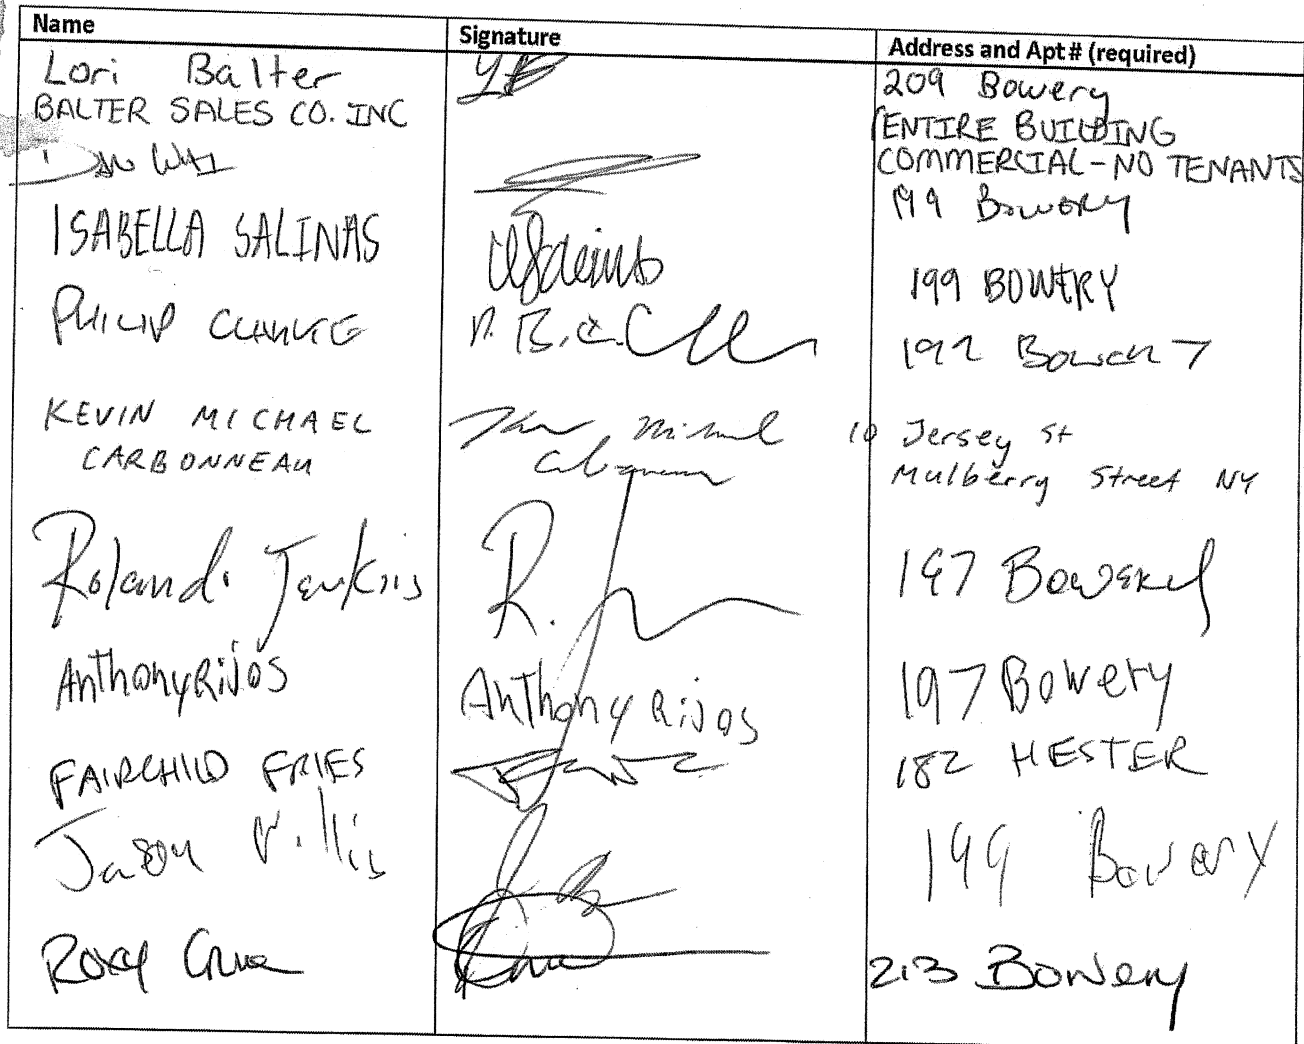 Name Signature Address and Apt # (required)
Lori Balter 209 Bowery
BALTER SALES CO. INC (ENTIRE BUILDING
COMMERCIAL - NO TENANTS
199 Bowery
ISABELLA SALINAS 199 BOWERY
PHILIP 192 Bowery
KEVIN MICHAEL 10 Jersey St
CARBONNEAU Mulberry Street NY
Roland Jenkins 197 Bowery
Anthony Rijos Anthony Rijos 197 Bowery
FAIRCHILD FRIES 182 HESTER
Jason Willis 199 Bowery
Roxy 213 Bowery